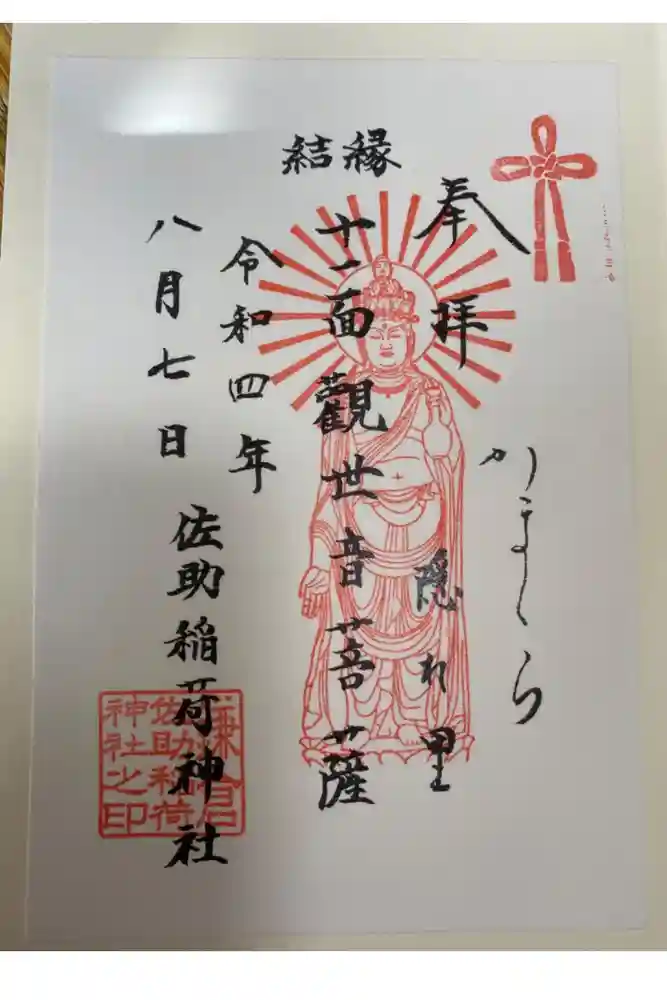 奉拝
かまくら
隠れ里
縁結
十一面觀世音菩薩
令和四年
八月七日
佐助稲荷神社
鎌倉
佐助稲荷
神社之印